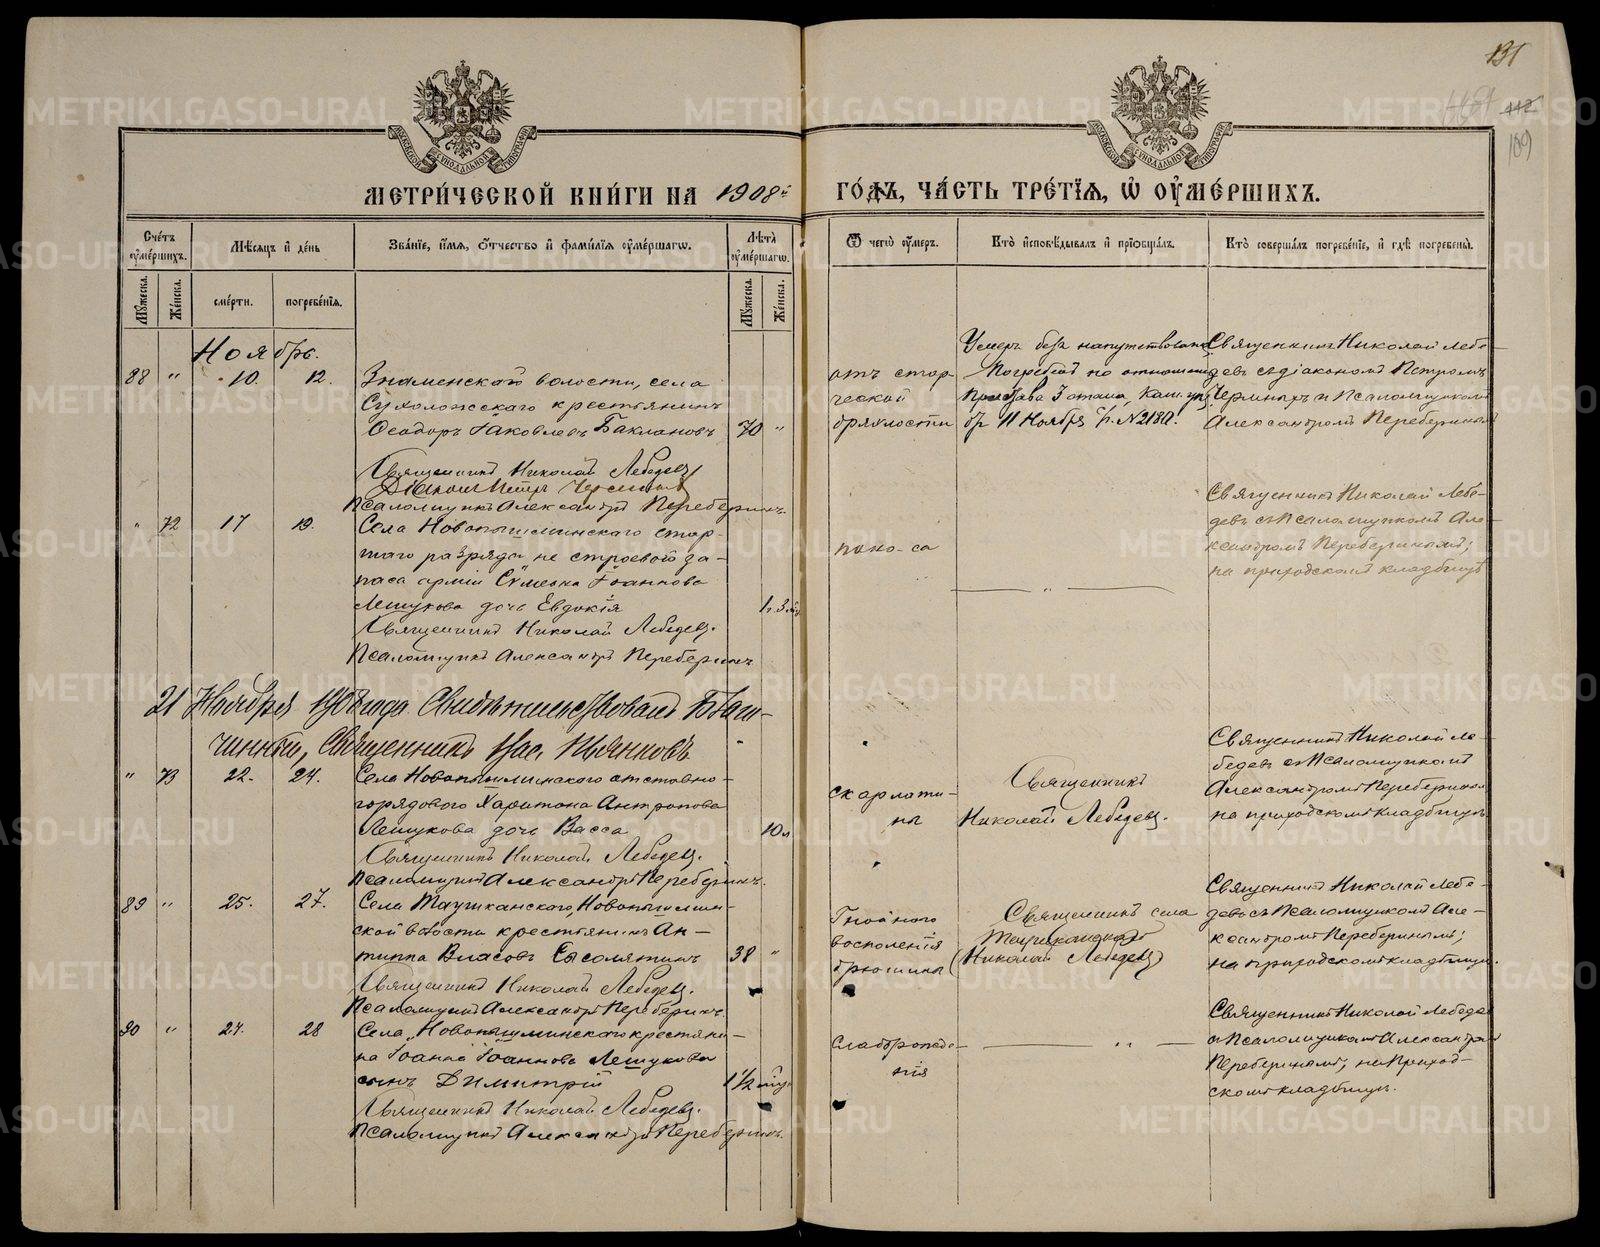 131
112
109
МЕТРИ́ЧЕСКОЙ КНИ́ГИ НА 1908й ГО́ДЪ, ЧА́СТЬ ТРЕ́ТІѦ, Ѡ ОУМЕ́РШИХЪ.
Сче́тъ оуме́ршихъ.
Мѣ́сяцъ и де́нь
Зва́ніе, и́мя, о́тчество и фами́лія оуме́ршагѡ.
Лѣ́та оуме́ршагѡ.
Ѿ чегѡ̀ оу́меръ.
Кто̀ исповѣ́дывалъ и приѡбща́лъ.
Кто̀ соверша́лъ погребе́ніе, и гдѣ̀ погребены̀.
Му́жеска.
Же́нска.
сме́рти.
погребе́нія.
Му́жеска.
Же́нска.
Ноябрь.
88 " 10. 12.
Знаменской волости, села
Сухоложскаго крестьянинъ
Ѳеодоръ Іаковлевъ Баклановъ 70 "
отъ стар-
ческой
дряхлости
Умеръ безъ напутствованія
Погребенъ по отношенію
Пристава 3 стана, Камышл.
отъ 11 Ноября с/г. №2180.
Священникъ Николай Лебе-
девъ съ діакономъ Петромъ
и Псаломщикомъ
Александромъ Переберинымъ
Священникъ Николай Лебедевъ
Діаконъ Петръ
Псаломщикъ Александръ Переберинъ.
" 72 17 19.
Села Новопышминскаго стар-
шаго разряда не строевой за-
паса арміи Сѵмеона Іоаннова
Лешукова дочь Евдокія 1 г. 3 мѣс
поно-са
— " —
Священникъ Николай Лебе-
девъ съ Псаломщикомъ Але-
ксандромъ Переберинымъ;
на приходскомъ кладбищѣ
Священникъ Николай Лебедевъ.
Псаломщикъ Александръ Переберинъ
21 Ноября 1908 года. Свидѣтельствовалъ Благо-
чинный, Священникъ Іас. Пьянковъ
" 73 22. 24.
Села Новопышминскаго отставно-
го рядового Харитона Антропова
Лешукова дочь Васса 10 л
скарлати-
ны
Священникъ
Николай Лебедевъ.
Священникъ Николай Ле-
бедевъ съ Псаломщикомъ
Александромъ Переберинымъ
на приходскомъ кладбищѣ
Священникъ Николай Лебедевъ.
Псаломщикъ Александръ Переберинъ.
89 " 25. 27.
Села Таушканскаго, Новопышмин-
ской волости крестьянинъ Ан-
типпа Власовъ Сысолятинъ 38 "
Гнойнаго
воспаленія
брюшины
Священникъ села
Таушканскаго
(Николай Лебедевъ)
Священникъ Николай Лебе-
девъ съ Псаломщикомъ Але-
ксандромъ Переберинымъ;
на приходскомъ кладбищѣ.
Священникъ Николай Лебедевъ.
Псаломщикъ Александръ Переберинъ
90 " 27. 28
Села Новопышминскаго крестьяни-
на Іоанна Іоаннова Лешукова
сынъ Димитрій 1 1/2 мѣс.
Слаборожде-
нія
— " —
Священникъ Николай Лебедевъ
съ Псаломщикомъ Александромъ
Переберинымъ; на Приход-
скомъ кладбищѣ.
Священникъ Николай Лебедевъ.
Псаломщикъ Александръ Переберинъ.
METRIKI.GASO-URAL.RU